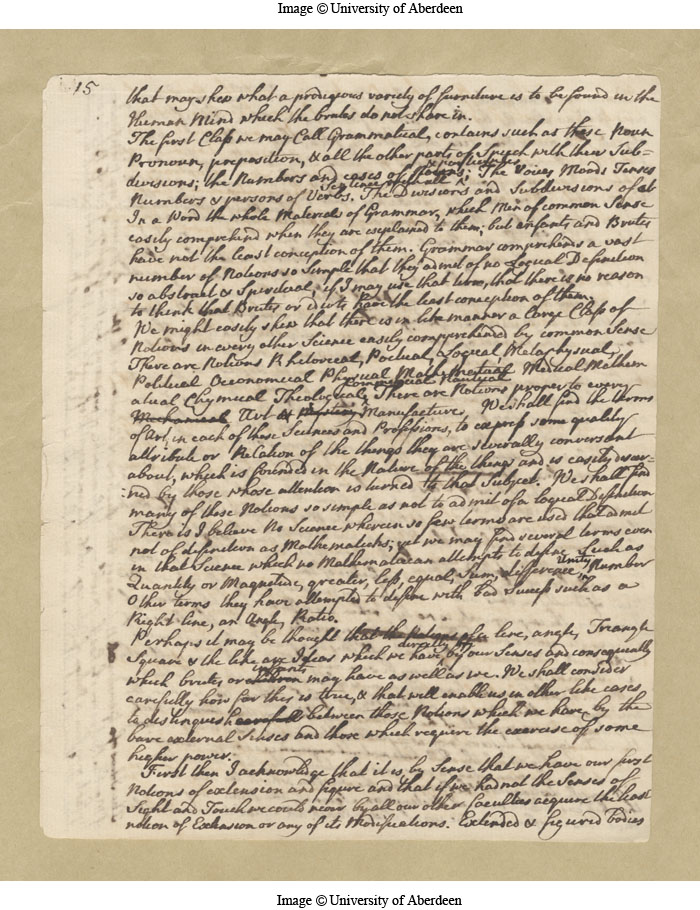 Image © University of Aberdeen
15
that may shew what a prodigious variety of furniture is to be found in the
Human Mind which the brutes do not share in.
The first Class we may Call Grammatical, contains such as these Noun
Pronoun, preposition, & all the other parts of Speech with their Sub-
divisions; the Numbers and cases of Nouns; The Voices Moods Tenses
Numbers & persons of Verbs. The Divisions and Subdivisions of
In a Word the whole Materials of Grammar, which Men of common Sense
easily comprehend when they are explained to them; but infants and Brutes
have not the least conception of them. Grammar comprehends a vast
number of Notions so Simple that they admit of no Logical Definition
so abstract & Spiritual, if I may use that term, that there is no reason
to think that Brutes or idiots have the least conception of them.
We might easily shew that there is in like manner a large Class of
Notions in every other Science easily comprehended by common Sense
There are Notions Rhetorical, Poetical, Logical Metaphysical,
Political Oeconomical Physical Medical Mathem
Commercial Nautical
atical Chymical Theological, There are Notions proper to every
Mechanical Art & Manufacture, We shall find the terms
of Art, in each of these Sciences and Professions, to express some quality
attribute or Relation of the things they are severally conversant
about, which is founded in the Nature of the things and is easily discer-
ned by those whose attention is turned to that Subject. We shall find
many of these Notions so simple as not to admit of a Logical Definition
There is I believe No Science wherein so few terms are used that admit
not of definition as Mathematicks; yet we may find several terms even
in that Science which no Mathematician attempts to define Such as
Unity
Quantity or Magnitude, greater, less, equal, Sum, difference, Number
Other terms they have attempted to define with bad Success such as a
Right line, an Angle, Ratio.
Perhaps it may be thought that the Notions of a line, angle, Triangle
directly
Square & the like are Ideas which we have by our Senses and consequently
infants
which brutes or children may have as well as we. We shall consider
carefully how far this is true, & that will enable us in other like cases
to distinguish carefull between those Notions which we have by the
bare external Senses and those which require the exercise of some
higher power.
First then I acknowledge that it is by Sense that we have our first
Notions of extension and figure and that if we had not the Senses of
Sight and Touch we could never by all our other faculties acquire the least
notion of Extension or any of its Modifications. Extended & figured bodies
Image © University of Aberdeen